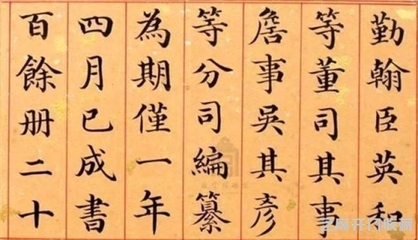 勤翰臣英和
等董司其事
詹事吳其彦
等分司編纂
為期僅一年
四月已成書
百餘册二十